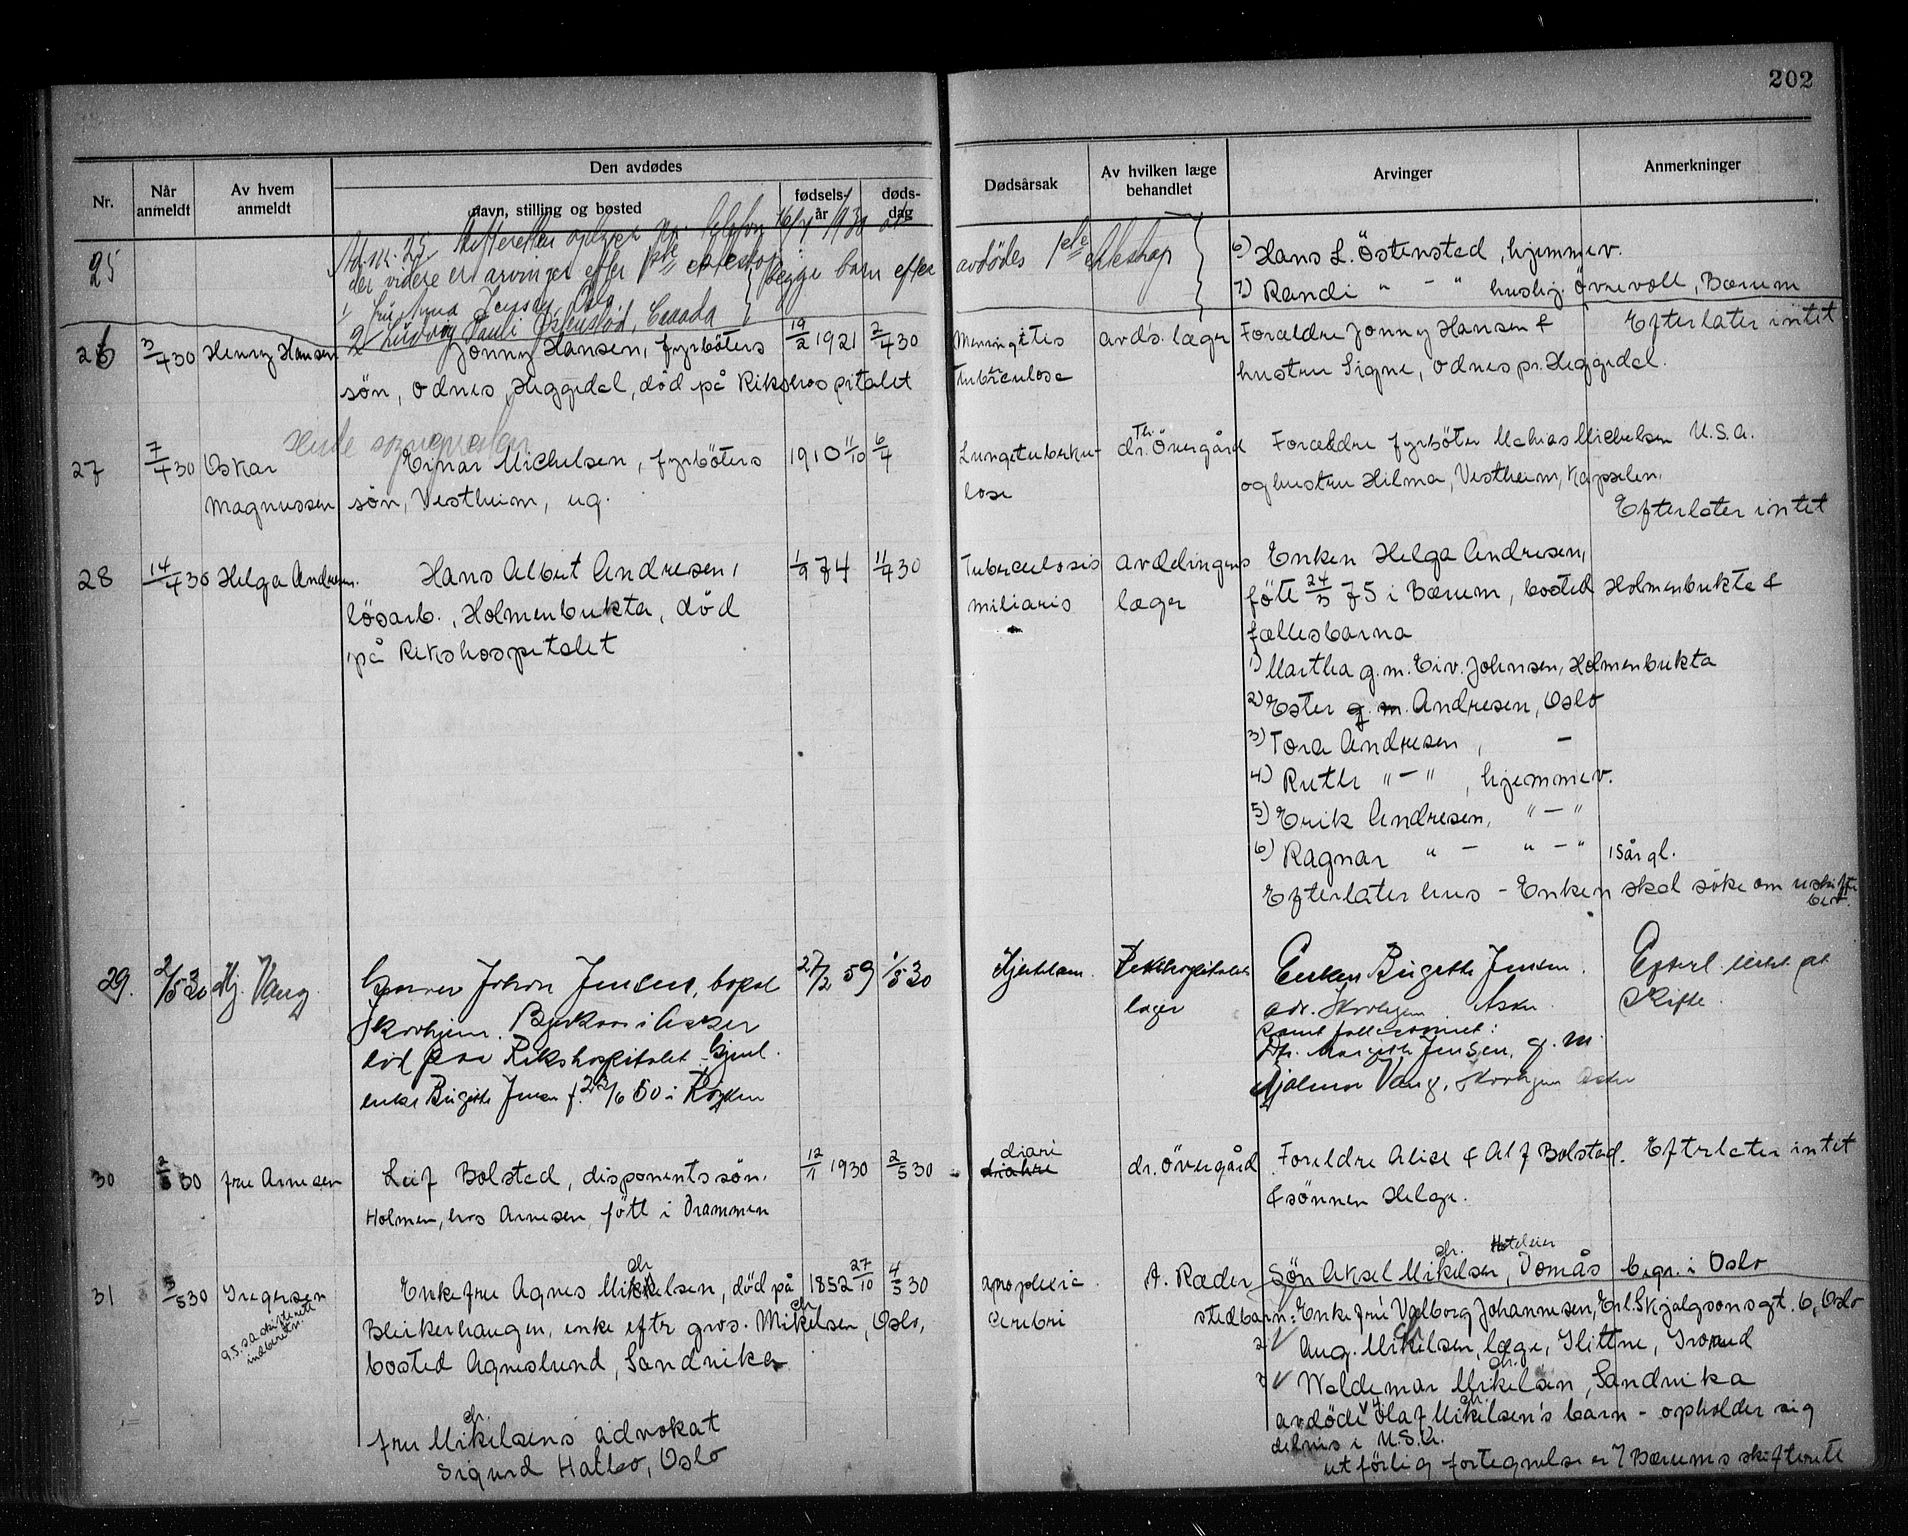 202
Nr.
Når anmeldt
Av hvem anmeldt
Den avdødes
navn, stilling og bosted
fødsels-år
døds-dag
Dødsårsak
Av hvilken læge behandlet
Arvinger
Anmerkninger
25
Ad. nr. 25 Skifteretten oplyser pr. telefon 16/4 1930 at
der videre er arvinger efter 1ste ekteskap
1 fru Anna Jensen
2 Ludvig Pauli Østensted, Canada } begge barn efter
avdödes 1ste ekteskap
6) Hans L. Östensted, hjemmev.
7) Randi " - " huslig. Övrevoll, Bærum
26 3/4 30 Henry Hansen
Jonny Hansen, fyrböters
sön, Odnes, Heggedal, död på Rikshospitalet
19/2 1921 2/4 30
Meningitis
tuberculose
avds. læger
Foreldre Jonny Hansen &
hustru Signe, Odnes pr. Heggedal.
Efterlater intet
27 7/4 30 Oskar
Magnussen
Ejnar Michelsen, fyrböters
sön, Vestheim, ug.
1910 11/10 6/4
Lungetuberku-
lose
dr. Th. Övergård
Foreldre fyrböter Mathias Michelsen U.S.A.
og hustru Hilma, Vestheim, Kapselen.
Efterlater intet
28 14/4 30 Helga Andresen.
Hans Albert Andresen,
lösarb., Holmenbukta, död
på Rikshospitalet
1/9 74 11/4 30
Tuberculosis
miliaris
avdelingens
læger
Enken Helga Andresen,
fött 24/3 75 i Bærum, bosted Holmenbukta &
fællesbarna
1) Martha g.m. Eiv. Johnsen, Holmenbukta
2) Ester g. m. Andresen, Oslo
3) Tora Andresen, -
4) Ruth " - ", hjemmev.
5) Erik Andresen, " - "
6) Ragnar " - " - " 15 år gl.
Efterlater hus - Enken skal söke om uskifte
bev.
29. 2/5 30 Hj. Vang
Johan Jensen, bopæl
Skovhjem. i Asker
död paa Rikshospitalet. Gjenl.
enke Birgitte Jensen f. 23/6 60 i Røyken
27/2 59 1/5 30
Hjertelam.
Rikshospitalets
læger
Enken Birgitte Jensen.
adr. Skovhjem Asker
samt fællesbarnet:
Margith Jensen, g. m.
Hjalmar Vang, Skovhjem Asker
Efterl. intet at
skifte.
30 2/5 30 fru Arnesen
Leif Bolsted, disponents sön,
Holmen, hos Arnesen, fött i Drammen
12/1 1930 2/5 30
diari
dr. Övergård
Foreldre Alise & Alf Bolstad. Efterlater intet
& sönnen Helge.
31 5/5 30 Iregersen
9.5. s.a skifterett
indberetn.
Enkefru Agnes Mikkelsen, död på
Blekerhaugen, enke eftr gros. Mikelsen, Oslo,
bosted Agneslund, Sandvika
1852 27/10 4/5 30
fru Mikelsens advokat
Sigurd Halbo, Oslo
apoplexia
cerebri
A. Ræder
Sön Aksel Mikelsen, Hoteleier Domås begr. i Oslo
stedbarn: Enkefru Valborg Johannesen, Erl. Skjalgsonsgt. 6, Oslo
2 Aug. Mikelsen, læge,
3 Waldemar Mikelsen, Sandvika
avdöde Olaf Mikelsen's barn - opholder sig
delvis i U.S.A.
utförlig fortegnelse er i Bærums skifterett